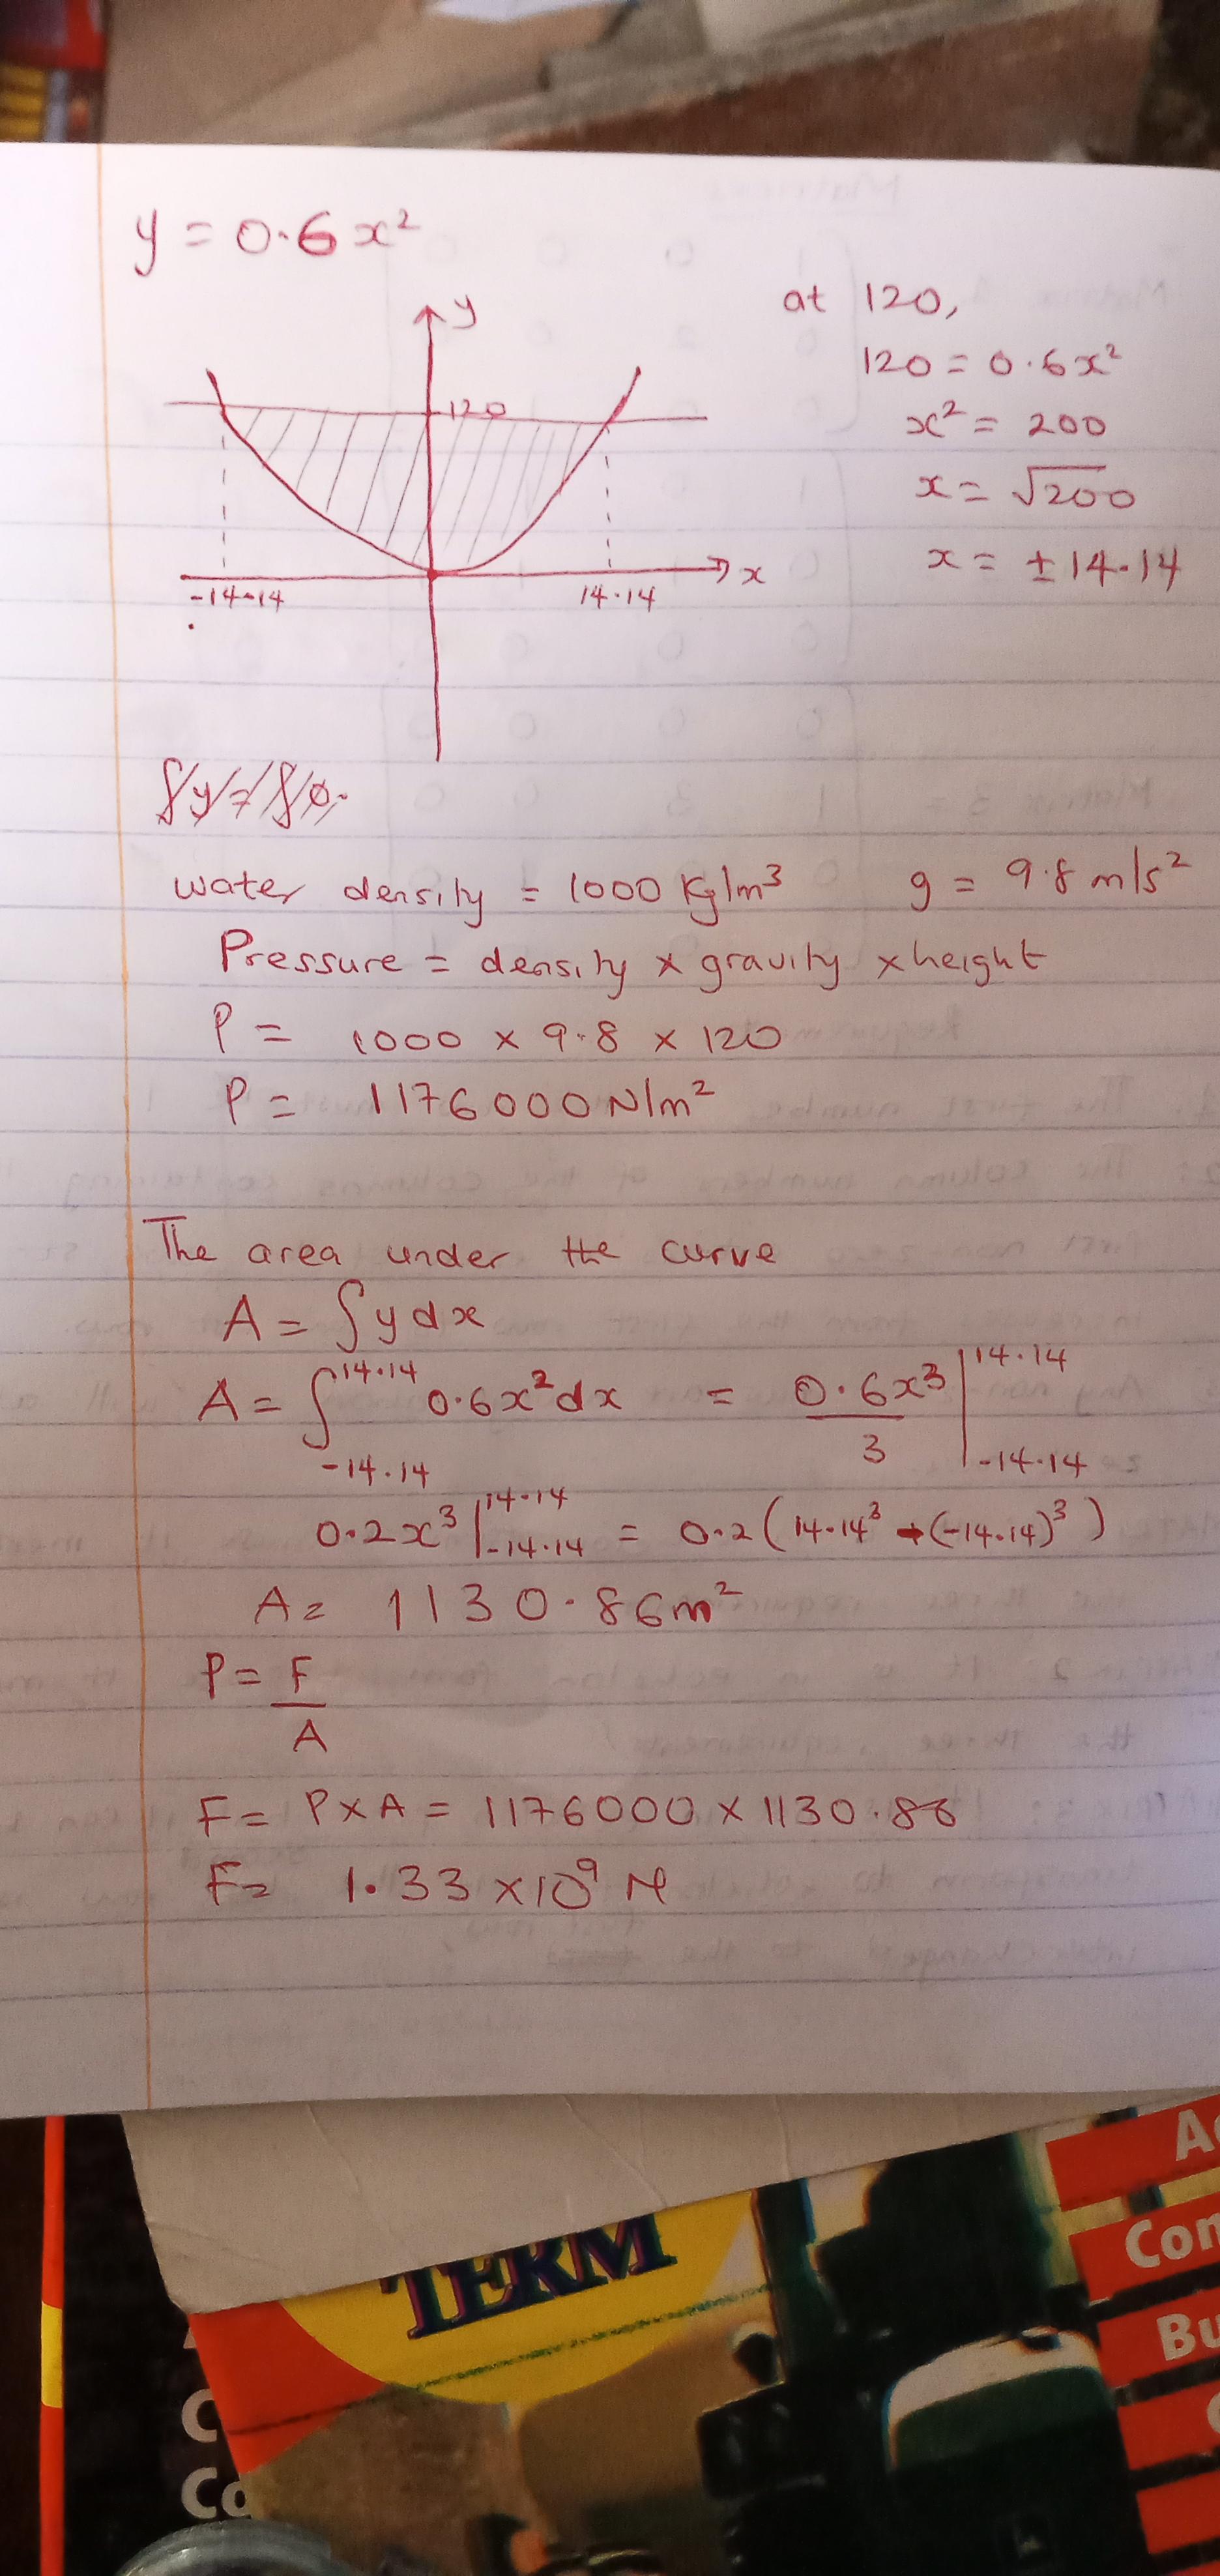 y = 0.6x²
at 120,
120 = 0.6x²
x² = 200
x = √200
x = ±14.14
y
120
x
-14.14
14.14
water density = 1000 Kg/m³ g = 9.8 m/s²
Pressure = density x gravity x height
P = 1000 x 9.8 x 120
P = 1176000 N/m²
The area under the curve
A = ∫ydx
A = ∫-14.14^14.14 0.6x²dx = 0.6x³/3 |-14.14^14.14
0.2x³|-14.14^14.14 = 0.2(14.14³ - (-14.14)³)
A = 1130.86m²
P = F/A
F = P x A = 1176000 x 1130.86
F = 1.33 x 10⁹ N
TERM
Con
Bu
C
Co